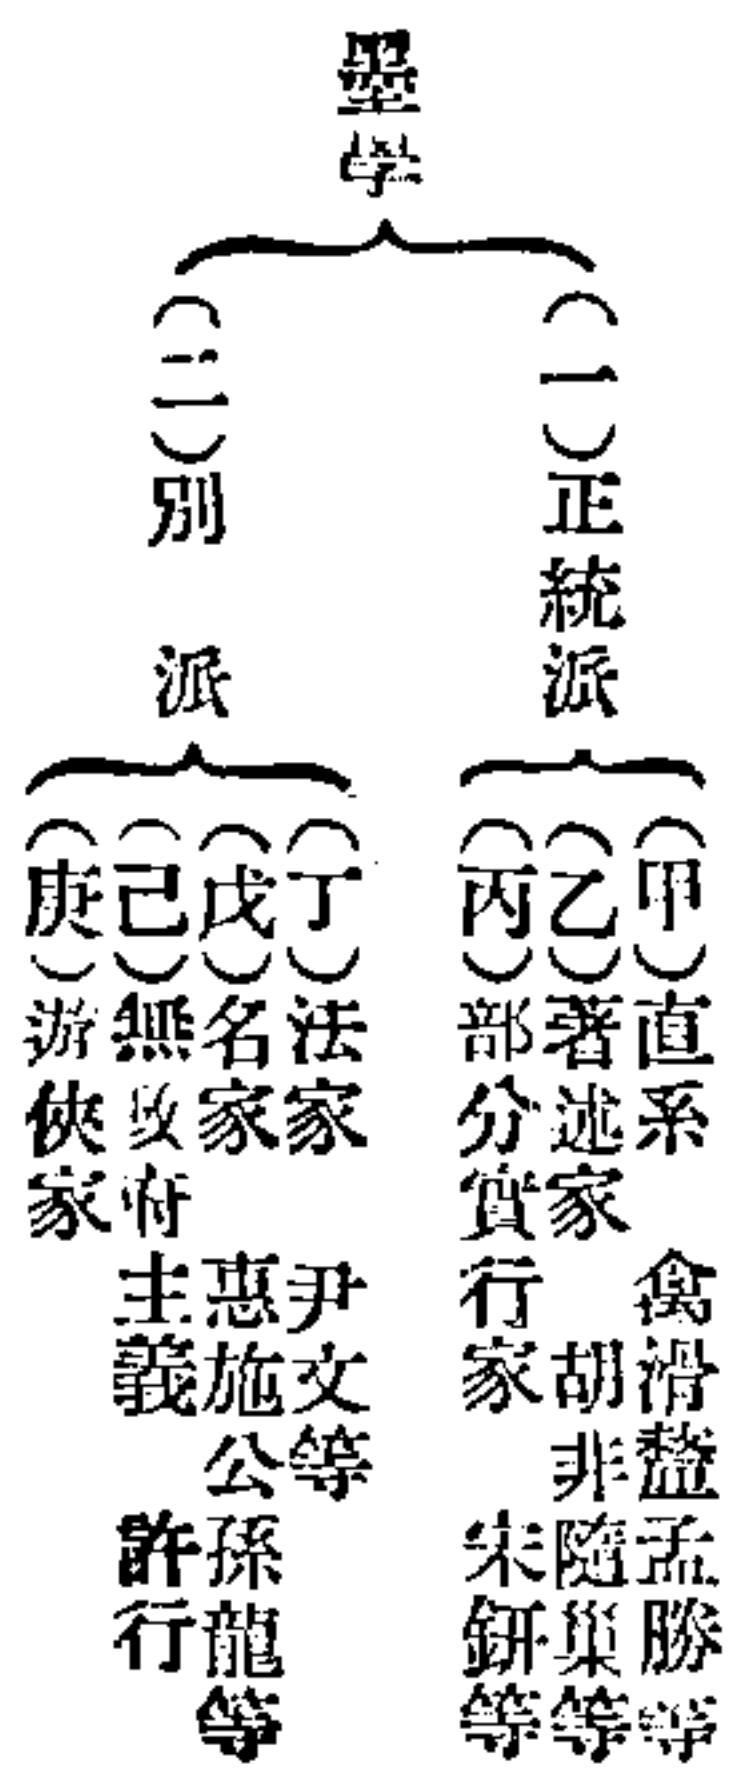 墨學
（一）正統派
（甲）直系　禽滑釐孟勝等
（乙）著述家　胡非隨巢等
（丙）部分實行家　宋鈃等
（二）別派
（丁）法家　尹文等
（戊）名家　惠施公孫龍等
（己）無政府主義　許行
（庚）游俠家